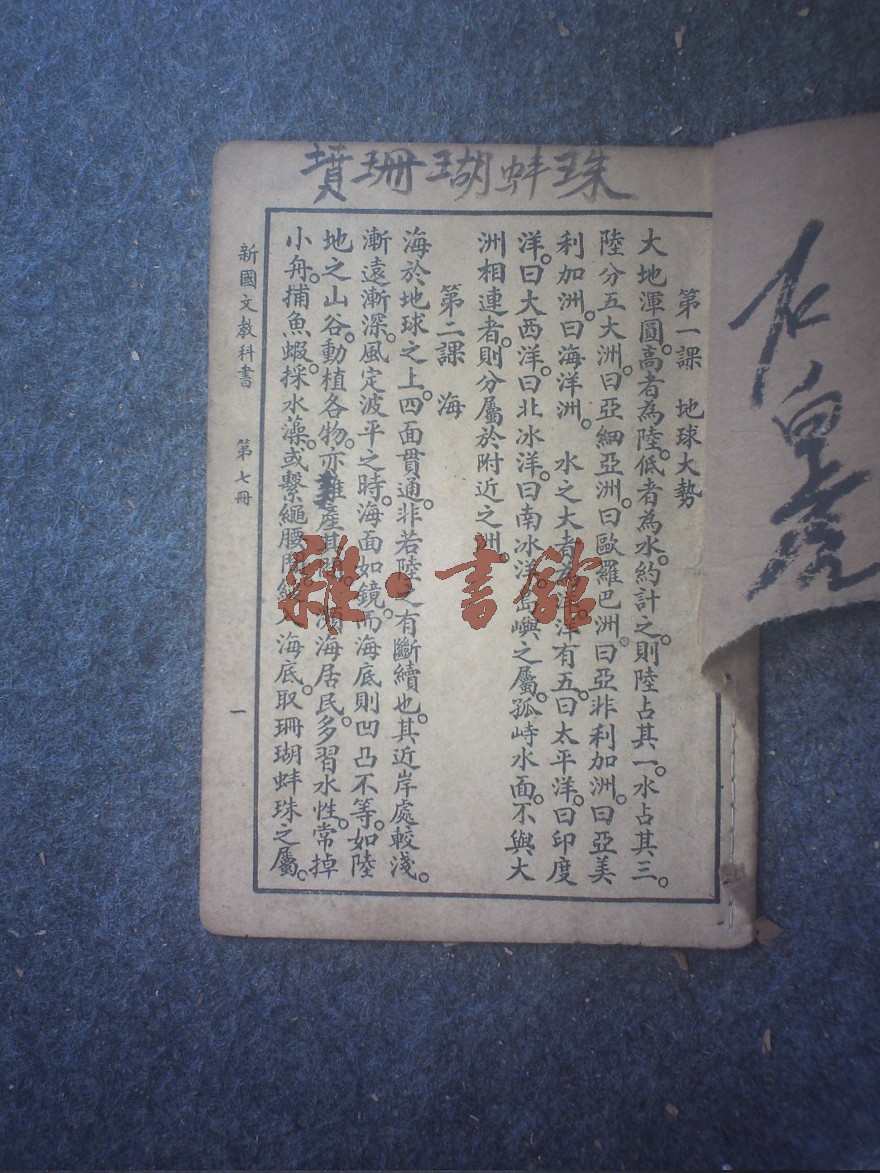 墳珊瑚蚌珠
第一課　地球大勢
大地渾圓。高者為陸。低者為水。約計之。則陸占其一。水占其三。
陸分五大洲。曰亞細亞洲。曰歐羅巴洲。曰亞非利加洲。曰亞美
利加洲。曰海洋洲。　水之大者為洋。洋有五。曰太平洋。曰印度
洋。曰大西洋。曰北冰洋。曰南冰洋。島嶼之屬。孤峙水面。不與大
洲相連者。則分屬於附近之洲。
第二課　海
海於地球之上。四面貫通。非若陸之有斷續也。其近岸處較淺。
漸遠漸深。風定波平之時。海面如鏡。而海底則凹凸不等。如陸
地之山谷。動植各物。亦雜產其間。瀕海居民。多習水性。常掉
小舟。捕魚蝦。採水藻。或繫繩腰間。縋入海底。取珊瑚蚌珠之屬。
新國文教科書　第七冊
一
雜·書館